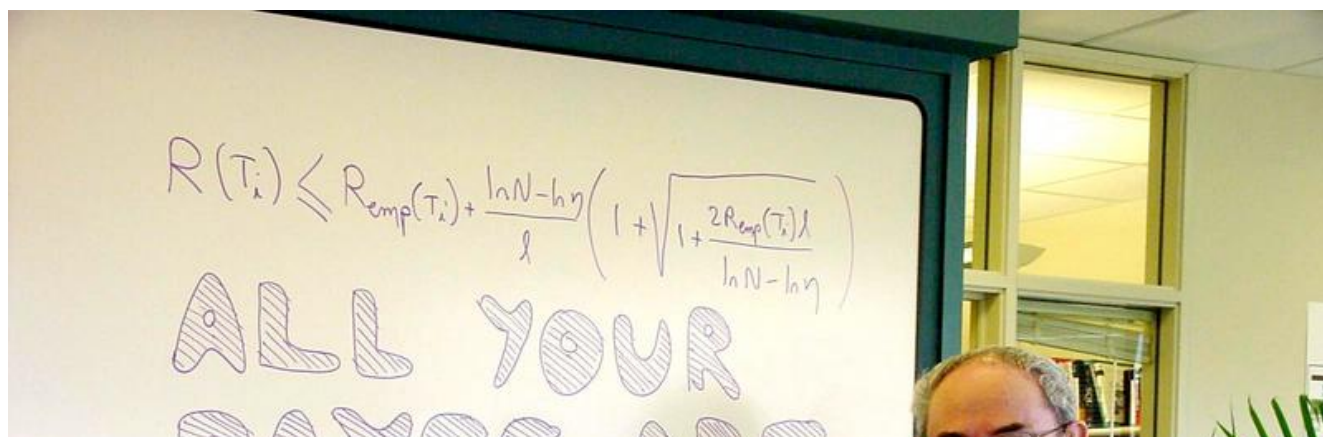 R(Tᵢ) ≤ Remp(Tᵢ) + (ln N - ln η)/l (1 + √(1 + (2Remp(Tᵢ)l)/(ln N - ln η)))
ALL YOUR
BAYES ARE